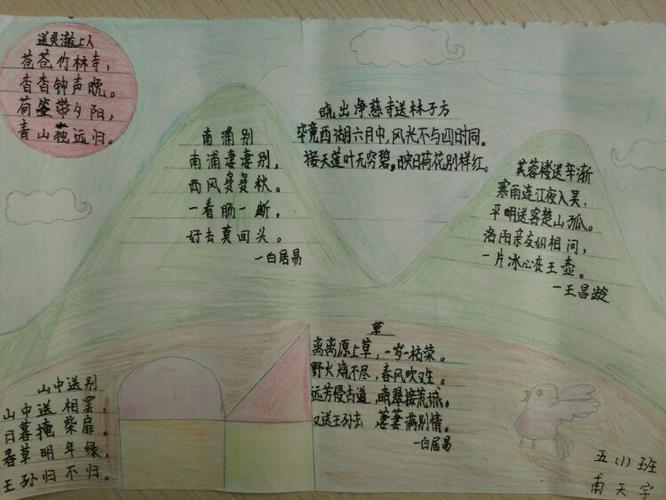 送灵澈上人
苍苍竹林寺，
杳杳钟声晚。
荷笠带夕阳，
青山独远归。
南浦别
南浦妻妻别，
西风多多秋。
一看肠一断，
好去莫回头。
一白居易
晓出净慈寺送林子方
毕竟西湖六月中，风光不与四时同。
接天莲叶无穷碧，映日荷花别样红。
芙蓉楼送辛渐
寒雨连江夜入吴，
平明送客楚山孤。
洛阳亲友如相问，
一片冰心在玉壶。
一王昌龄
草
离离原上草，一岁一枯荣。
野火烧不尽，春风吹又生。
远芳侵古道，晴翠接荒城。
又送王孙去 萋萋满别情。
一白居易
山中送别
山中送相罢，
日暮掩柴扉。
春草明年绿，
王孙归不归。
五(1)班
南天宇